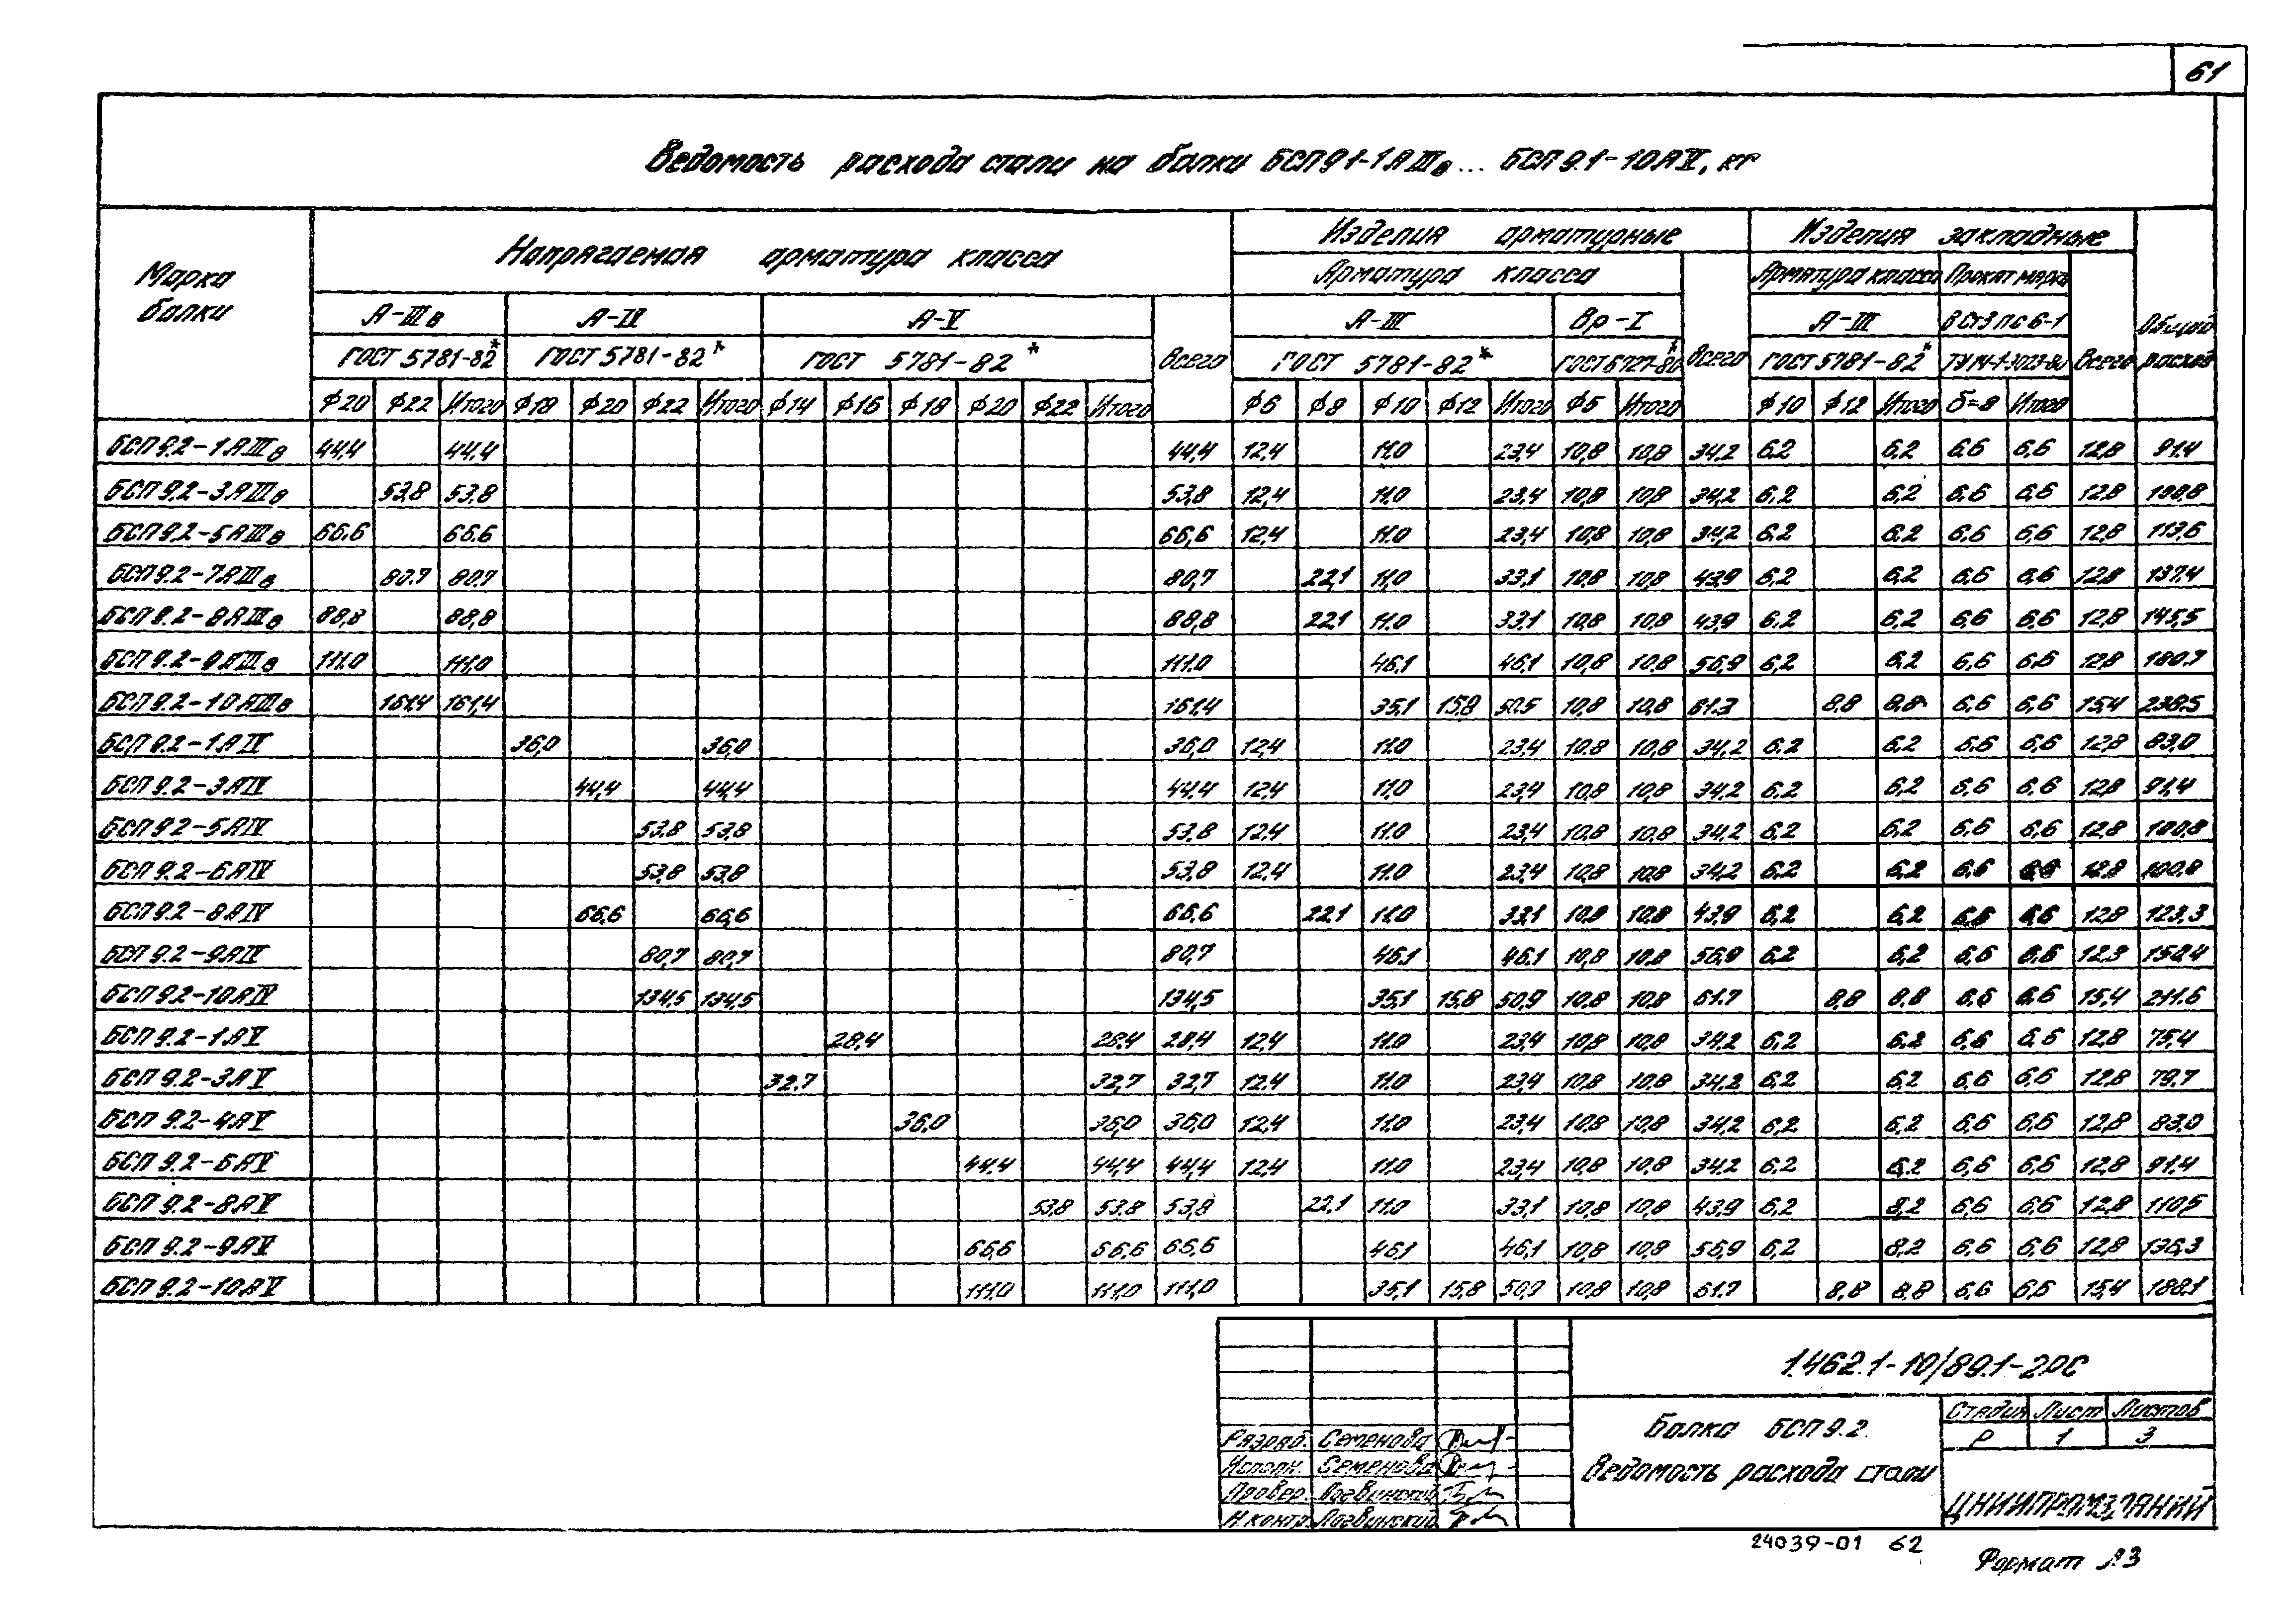 61
Ведомость расхода стали на балки БСП 9.1-1АIIIв... БСП 9.1-10АV, кг
Марка балки
Напрягаемая арматура класса
Изделия арматурные
Изделия закладные
Общий расход
Арматура класса
Арматура класса
Прокат марки
А-IIIв
А-IV
А-V
Всего
А-III
Вр-I
Всего
А-III
ВСт3пс6-1
Всего
ГОСТ 5781-82*
ГОСТ 5781-82*
ГОСТ 5781-82*
ГОСТ 5781-82*
ГОСТ 6727-80*
ГОСТ 5781-82*
ТУ14-1-3023-80
ф20 ф22 Итого ф18 ф20 ф22 Итого ф14 ф16 ф18 ф20 ф22 Итого ф6 ф8 ф10 ф12 Итого ф5 Итого ф10 ф12 Итого δ=8 Итого
БСП 9.2-1АIIIв 44,4 44,4 44,4 12,4 11,0 23,4 10,8 10,8 34,2 6,2 6,2 6,6 6,6 12,8 91,4
БСП 9.2-3АIIIв 53,8 53,8 53,8 12,4 11,0 23,4 10,8 10,8 34,2 6,2 6,2 6,6 6,6 12,8 100,8
БСП 9.2-5АIIIв 66,6 66,6 66,6 12,4 11,0 23,4 10,8 10,8 34,2 6,2 6,2 6,6 6,6 12,8 113,6
БСП 9.2-7АIIIв 80,7 80,7 80,7 22,1 11,0 33,1 10,8 10,8 43,9 6,2 6,2 6,6 6,6 12,8 137,4
БСП 9.2-8АIIIв 88,8 88,8 88,8 22,1 11,0 33,1 10,8 10,8 43,9 6,2 6,2 6,6 6,6 12,8 145,5
БСП 9.2-9АIIIв 111,0 111,0 111,0 46,1 46,1 10,8 10,8 56,9 6,2 6,2 6,6 6,6 12,8 180,7
БСП 9.2-10АIIIв 161,4 161,4 161,4 35,1 15,8 50,5 10,8 10,8 61,3 8,8 8,8 6,6 6,6 15,4 238,5
БСП 9.2-1АIV 36,0 36,0 36,0 12,4 11,0 23,4 10,8 10,8 34,2 6,2 6,2 6,6 6,6 12,8 83,0
БСП 9.2-3АIV 44,4 44,4 44,4 12,4 11,0 23,4 10,8 10,8 34,2 6,2 6,2 6,6 6,6 12,8 91,4
БСП 9.2-5АIV 53,8 53,8 53,8 12,4 11,0 23,4 10,8 10,8 34,2 6,2 6,2 6,6 6,6 12,8 100,8
БСП 9.2-6АIV 53,8 53,8 53,8 12,4 11,0 23,4 10,8 10,8 34,2 6,2 6,2 6,6 6,6 12,8 100,8
БСП 9.2-8АIV 66,6 66,6 66,6 22,1 11,0 33,1 10,8 10,8 43,9 6,2 6,2 6,6 6,6 12,8 123,3
БСП 9.2-9АIV 80,7 80,7 80,7 46,1 46,1 10,8 10,8 56,9 6,2 6,2 6,6 6,6 12,8 150,4
БСП 9.2-10АIV 134,5 134,5 134,5 35,1 15,8 50,9 10,8 10,8 61,7 8,8 8,8 6,6 6,6 15,4 211,6
БСП 9.2-1АV 28,4 28,4 28,4 12,4 11,0 23,4 10,8 10,8 34,2 6,2 6,2 6,6 6,6 12,8 75,4
БСП 9.2-3АV 32,7 32,7 32,7 12,4 11,0 23,4 10,8 10,8 34,2 6,2 6,2 6,6 6,6 12,8 79,7
БСП 9.2-4АV 36,0 36,0 36,0 12,4 11,0 23,4 10,8 10,8 34,2 6,2 6,2 6,6 6,6 12,8 83,0
БСП 9.2-6АV 44,4 44,4 44,4 12,4 11,0 23,4 10,8 10,8 34,2 6,2 6,2 6,6 6,6 12,8 91,4
БСП 9.2-8АV 53,8 53,8 53,8 22,1 11,0 33,1 10,8 10,8 43,9 6,2 8,2 6,6 6,6 12,8 110,5
БСП 9.2-9АV 66,6 66,6 66,6 46,1 46,1 10,8 10,8 56,9 6,2 8,2 6,6 6,6 12,8 136,3
БСП 9.2-10АV 111,0 111,0 111,0 35,1 15,8 50,9 10,8 10,8 61,7 8,8 8,8 6,6 6,6 15,4 188,1
1.462.1-10/89.1-2РС
Разраб. Семенова
Исполн. Семенова
Провер. Логвинский
Н.контр. Логвинский
Балка БСП 9.2.
Ведомость расхода стали
Стадия Лист Листов
Р 1 3
ЦНИИПРОМЗДАНИЙ
24039-01 62
Формат А3